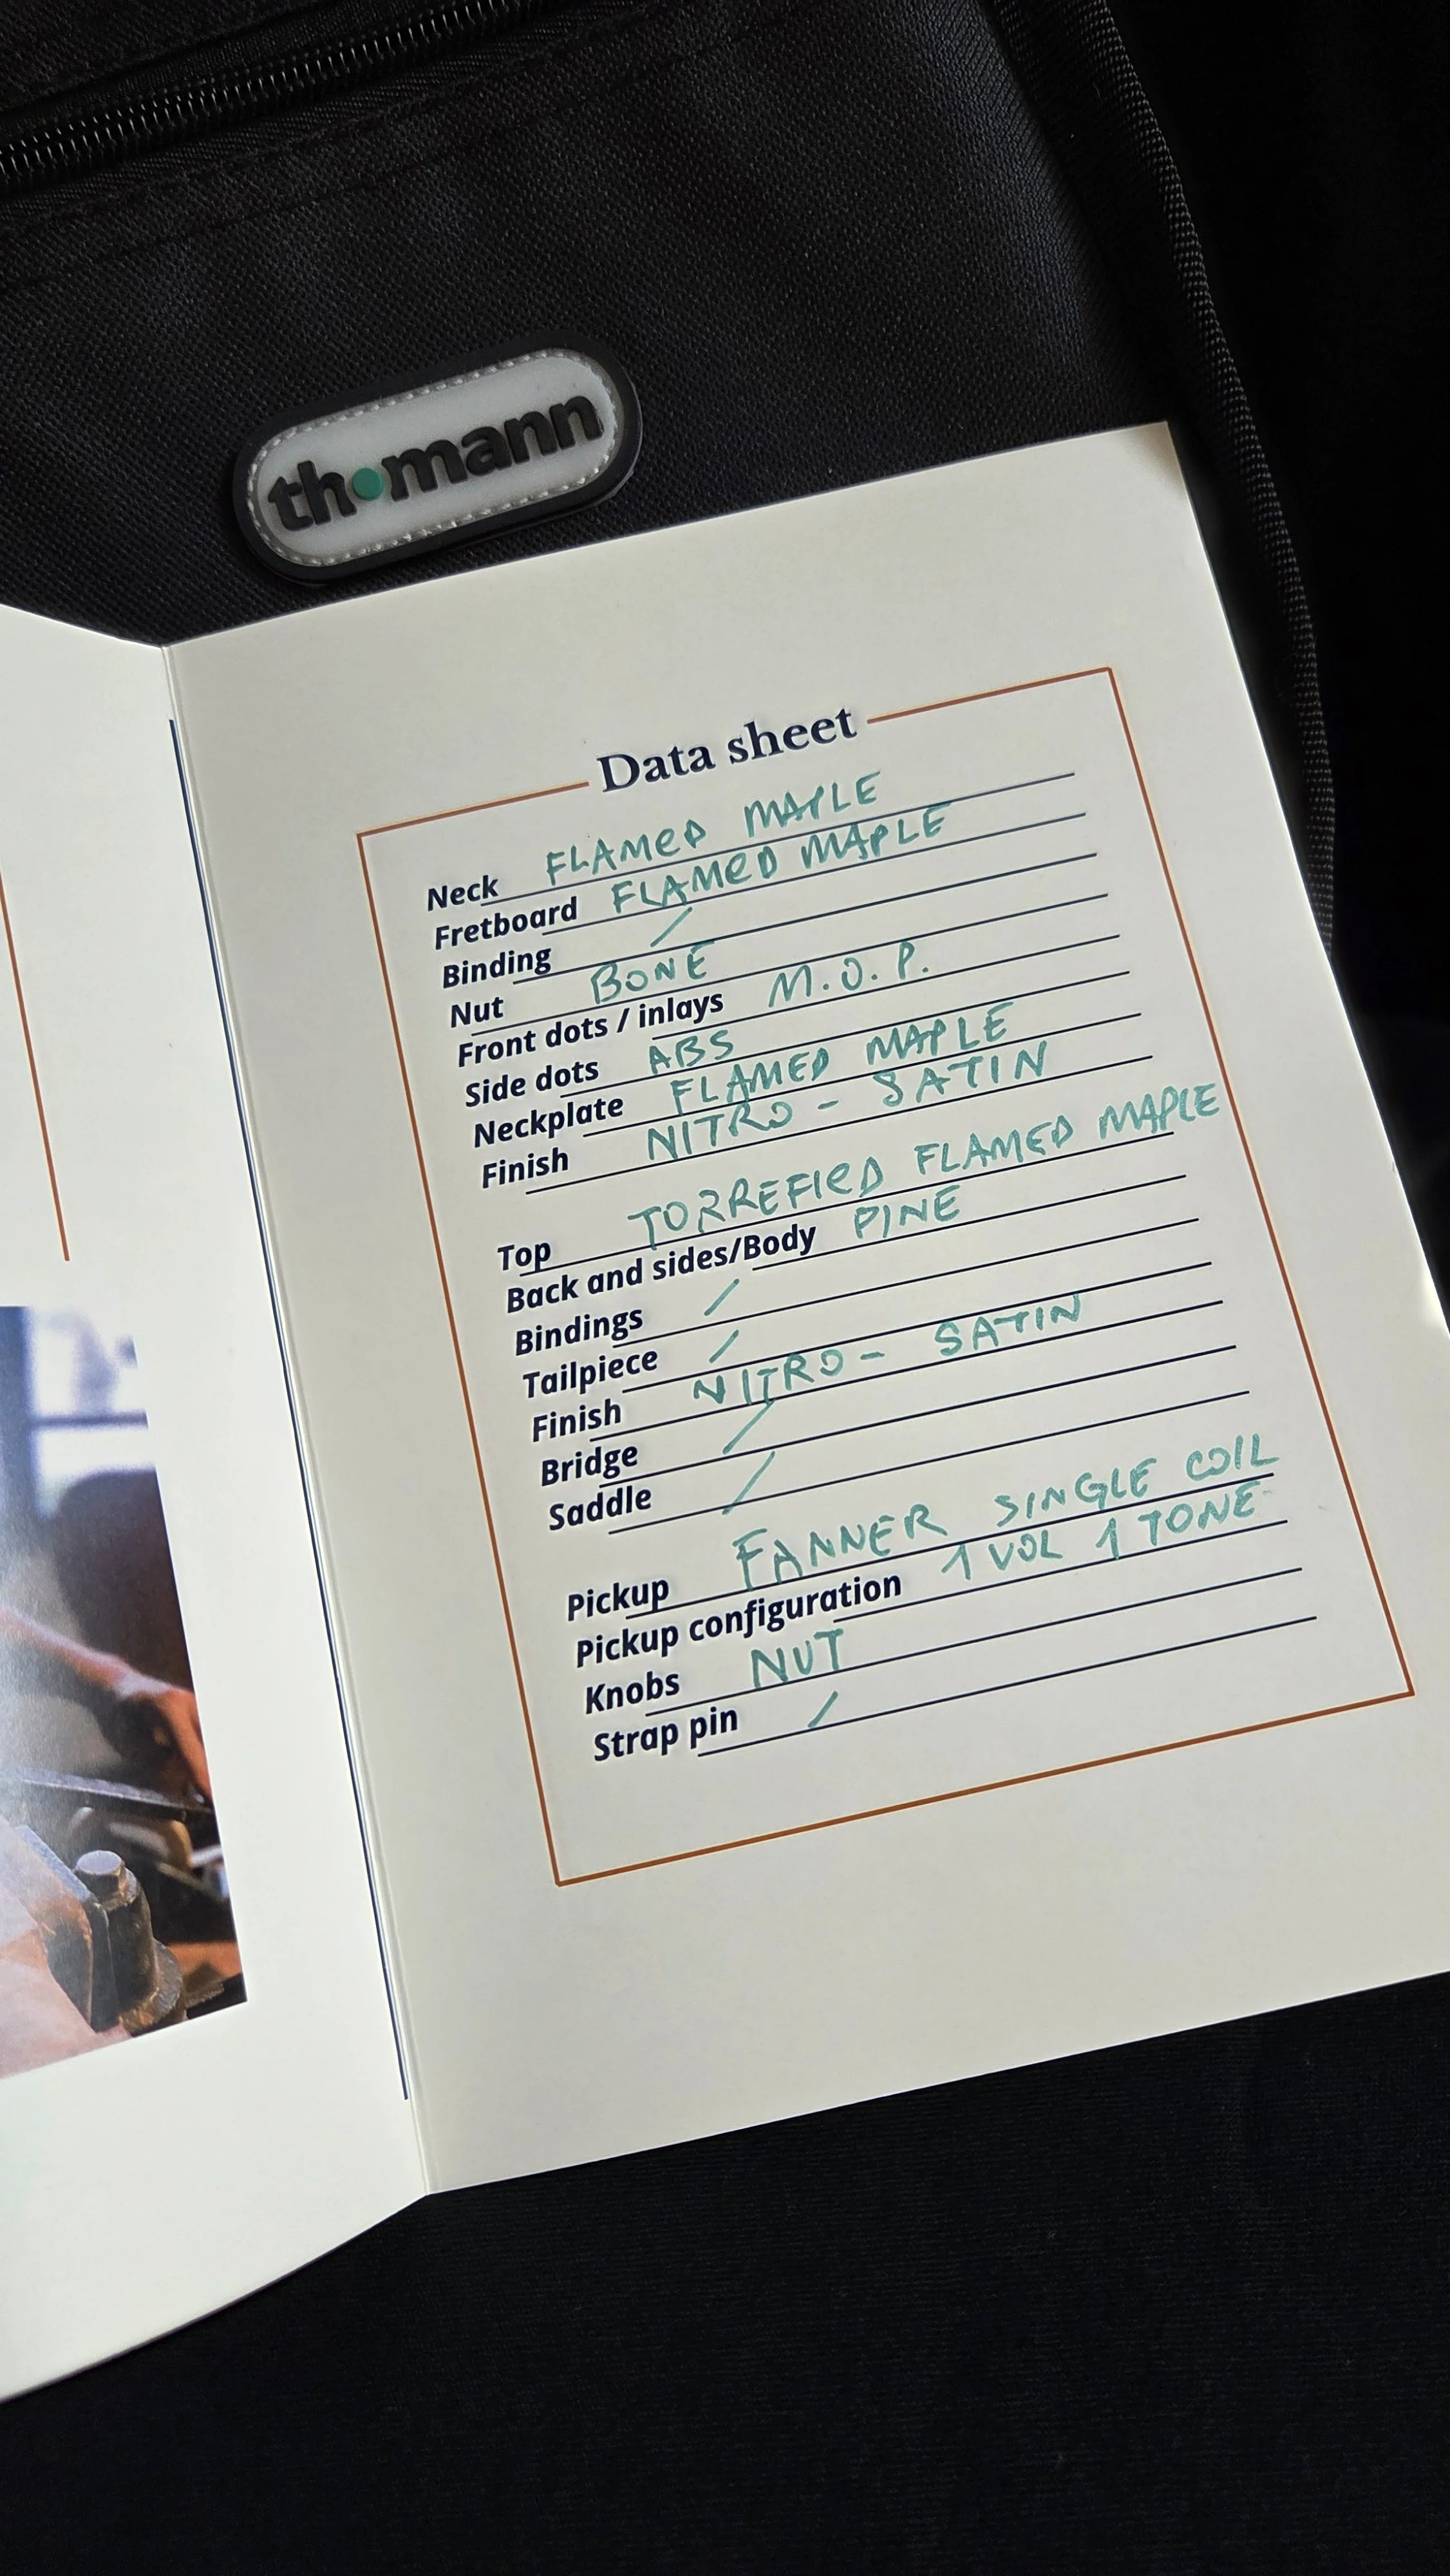 thomann
Data sheet
Neck FLAMED MAPLE
Fretboard FLAMED MAPLE
Binding /
Nut BONE
Front dots / inlays M.O.P.
Side dots ABS
Neckplate FLAMED MAPLE
Finish NITRO - SATIN
Top TORREFIED FLAMED MAPLE
Back and sides/Body PINE
Bindings /
Tailpiece /
Finish NITRO - SATIN
Bridge /
Saddle /
Pickup FANNER SINGLE COIL
Pickup configuration 1 VOL 1 TONE
Knobs NUT
Strap pin /